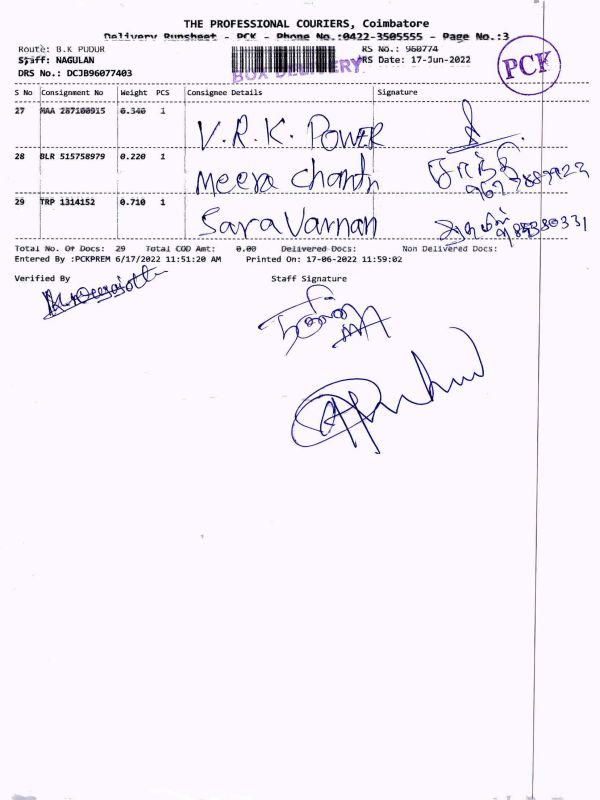 THE PROFESSIONAL COURIERS, Coimbatore
Delivery Runsheet - PCK - Phone No.:0422-3505555 - Page No.:3
Route: B.K PUDUR RS No.: 960774
Staff: NAGULAN BOX DELIVERY RS Date: 17-Jun-2022 PCK
DRS No.: DCJB96077403
S No Consignment No Weight PCS Consignee Details Signature
27 MAA 287100915 0.340 1 V.R.K. POWER
28 BLR 515758979 0.220 1 Meera Chandn
29 TRP 1314152 0.710 1 Saravarnan
Total No. Of Docs: 29 Total COD Amt: 0.00 Delivered Docs: Non Delivered Docs:
Entered By :PCKPREM 6/17/2022 11:51:20 AM Printed On: 17-06-2022 11:59:02
Verified By Staff Signature